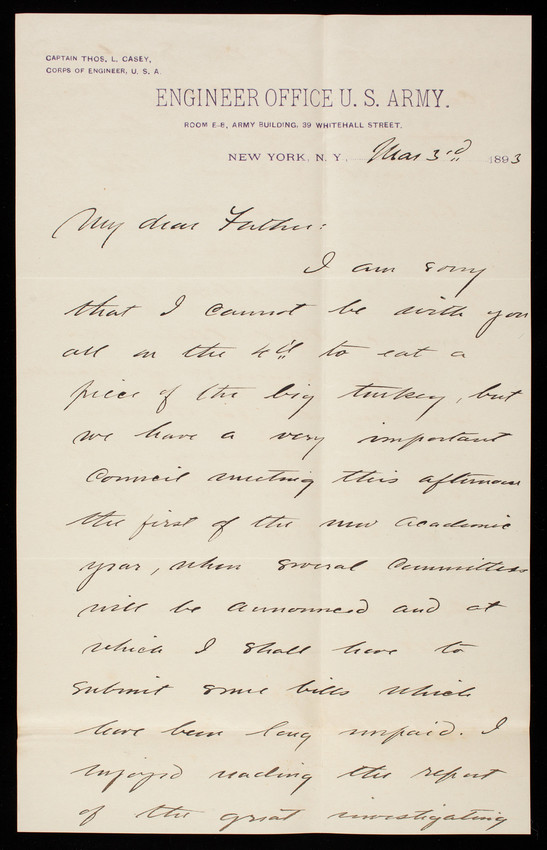 CAPTAIN THOS. L. CASEY,
CORPS OF ENGINEER, U. S. A.
ENGINEER OFFICE U. S. ARMY.
ROOM E-8, ARMY BUILDING, 39 WHITEHALL STREET.
NEW YORK, N. Y., Mar 3rd 1893
My dear Father:
I am sorry
that I cannot be with you
all on the 4th to eat a
piece of the big turkey, but
we have a very important
Council meeting this afternoon
the first of the new academic
year, when several Committees
will be announced and at
which I shall have to
submit some bills which
have been long unpaid. I
enjoyed reading the report
of the great investigating